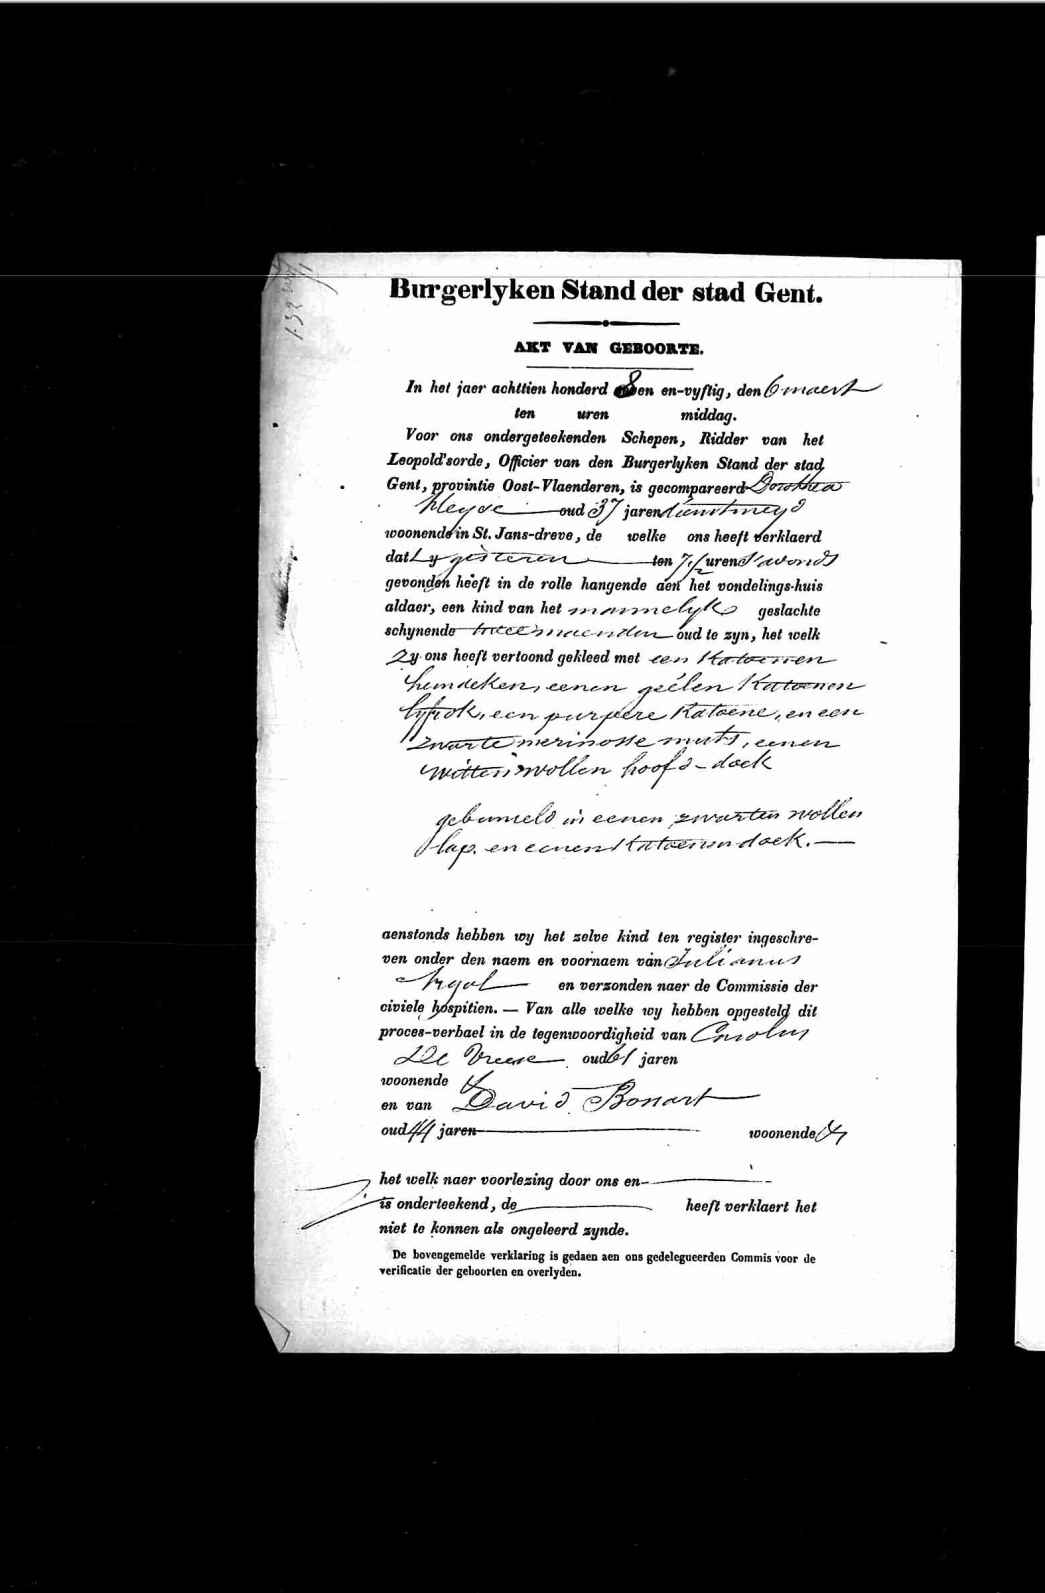 Burgerlyken Stand der stad Gent.
AKT VAN GEBOORTE.
In het jaer achttien honderd 8 en en-vyftig, den 6 maert
ten uren middag.
Voor ons ondergeteekenden Schepen, Ridder van het
Leopold'sorde, Officier van den Burgerlyken Stand der stad
Gent, provintie Oost-Vlaenderen, is gecompareerd Dorothea
oud 37 jaren dienstmeyd
woonende in St. Jans-dreve, de welke ons heeft verklaerd
dat zy gisteren ten 7 1/2 uren s'avonds
gevonden heeft in de rolle hangende aen het vondelings-huis
aldaer, een kind van het mannelyk geslachte
schynende twee maenden oud te zyn, het welk
zy ons heeft vertoond gekleed met een katoenen
hemdeken, eenen geëlen katoenen
lyfrok, een purpere katoene, en een
zwarte merinosse muts, eenen
witten wollen hoofd-doek
gebunseld in eenen zwarten wollen
lap, en eenen katoenen doek.
aenstonds hebben wy het zelve kind ten register ingeschre-
ven onder den naem en voornaem van Julianus
Argal en verzonden naer de Commissie der
civiele hospitien. — Van alle welke wy hebben opgesteld dit
proces-verbael in de tegenwoordigheid van Carolus
De Vreese oud 61 jaren
woonende
en van David Bonart
oud 44 jaren woonende
het welk naer voorlezing door ons en
is onderteekend, de heeft verklaert het
niet te konnen als ongeleerd zynde.
De bovengemelde verklaring is gedaen aen ons gedelegueerden Commis voor de
verificatie der geboorten en overlyden.